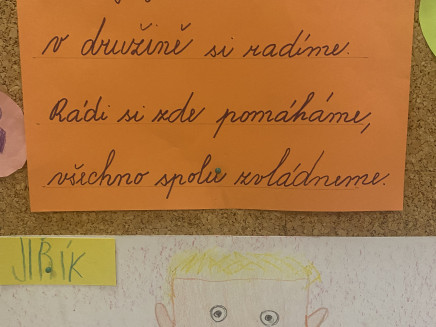 v družině si radíme.
Rádi si zde pomáháme,
všechno spolu zvládneme.
JIŘÍK